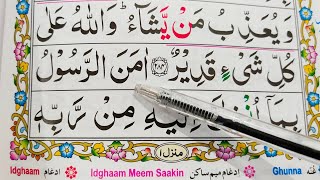 وَيُعَذِّبُ مَنْ يَّشَآءُ ؕ وَاللّٰهُ عَلٰى
كُلِّ شَىْءٍ قَدِيْرٌ ﴿۲۸۴﴾ اٰمَنَ الرَّسُوْلُ
بِمَاۤ اُنْزِلَ اِلَيْهِ مِنْ رَّبِّهٖ
منزل ۱
Idghaam ادغام Idghaam Meem Saakin ادغام میم ساکن Ghunna غنہ